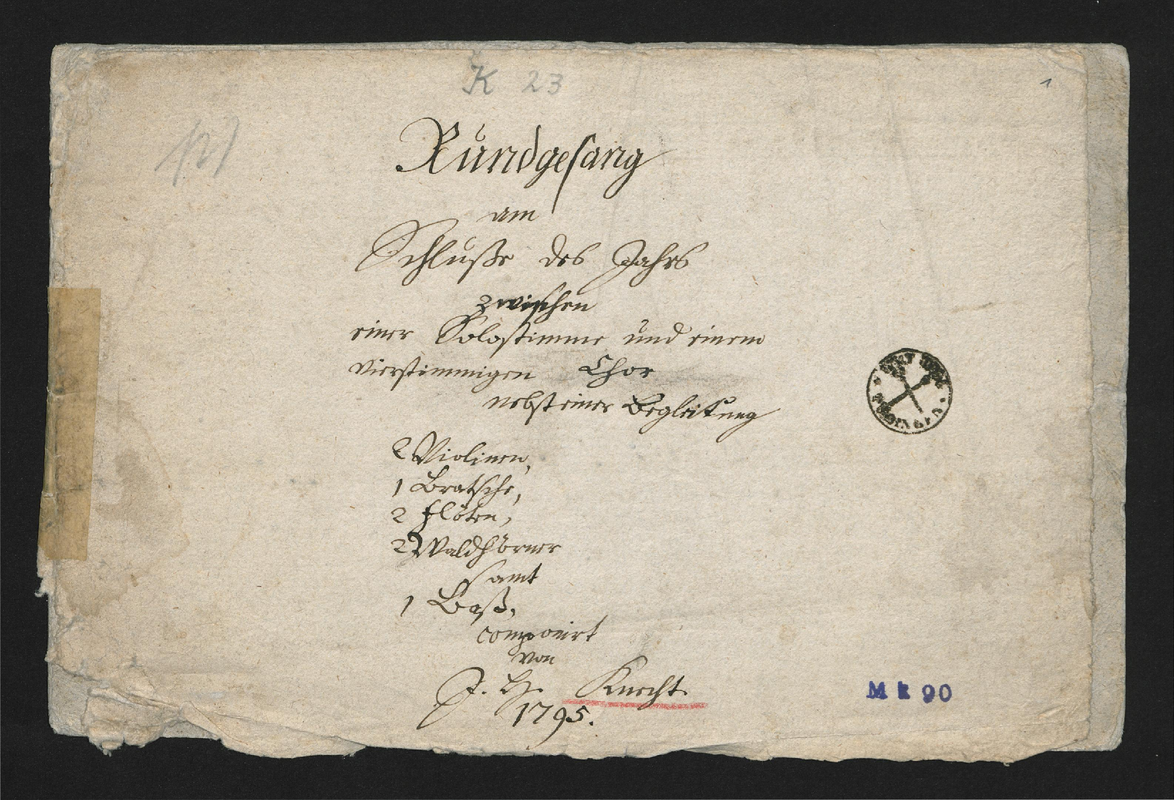 K 23
1
Rundgesang
am
Schluße des Jahrs
zwischen
einer Solostimme und einem
vierstimmigen Chor
nebst einer Begleitung
2 Violinen,
1 Bratsche,
2 Flöten,
2 Waldhörner
samt
1 Baß,
componirt
von
J. H. Knecht
1795.
Mk 90